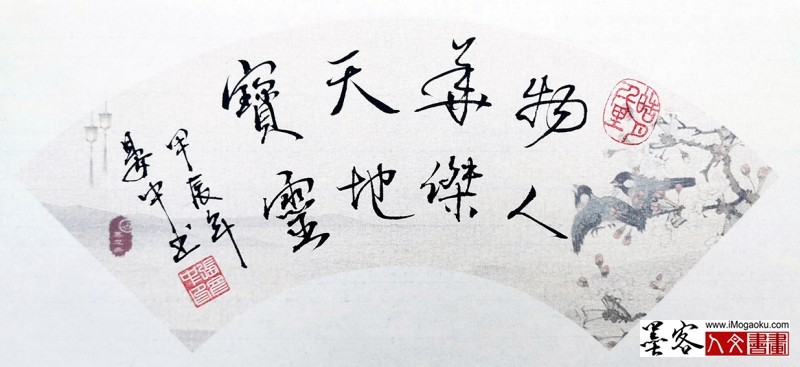 物華天寶
人傑地靈
甲辰年
中书
墨客
www.iMogaoku.com
人文書畫